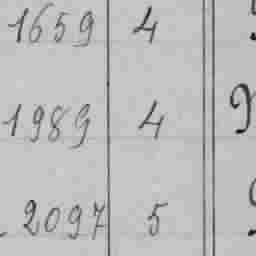 1659 4
1989 4
2097 5